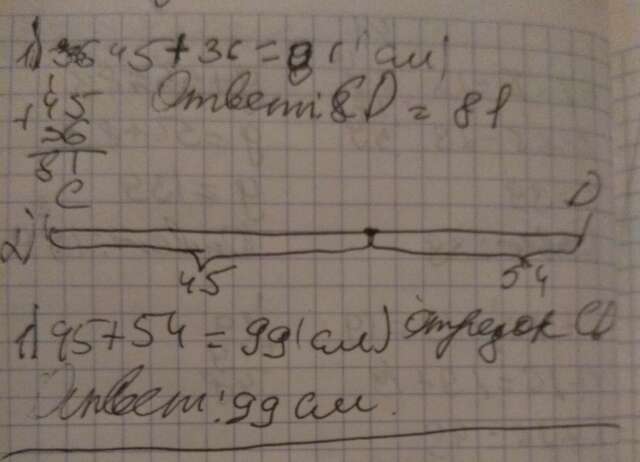 1) 45+36=81(см)
Ответ: CD=81
+45
36
81
C D
2)
45 54
1) 45+54=99(см) отрезок CD
Ответ: 99 см.